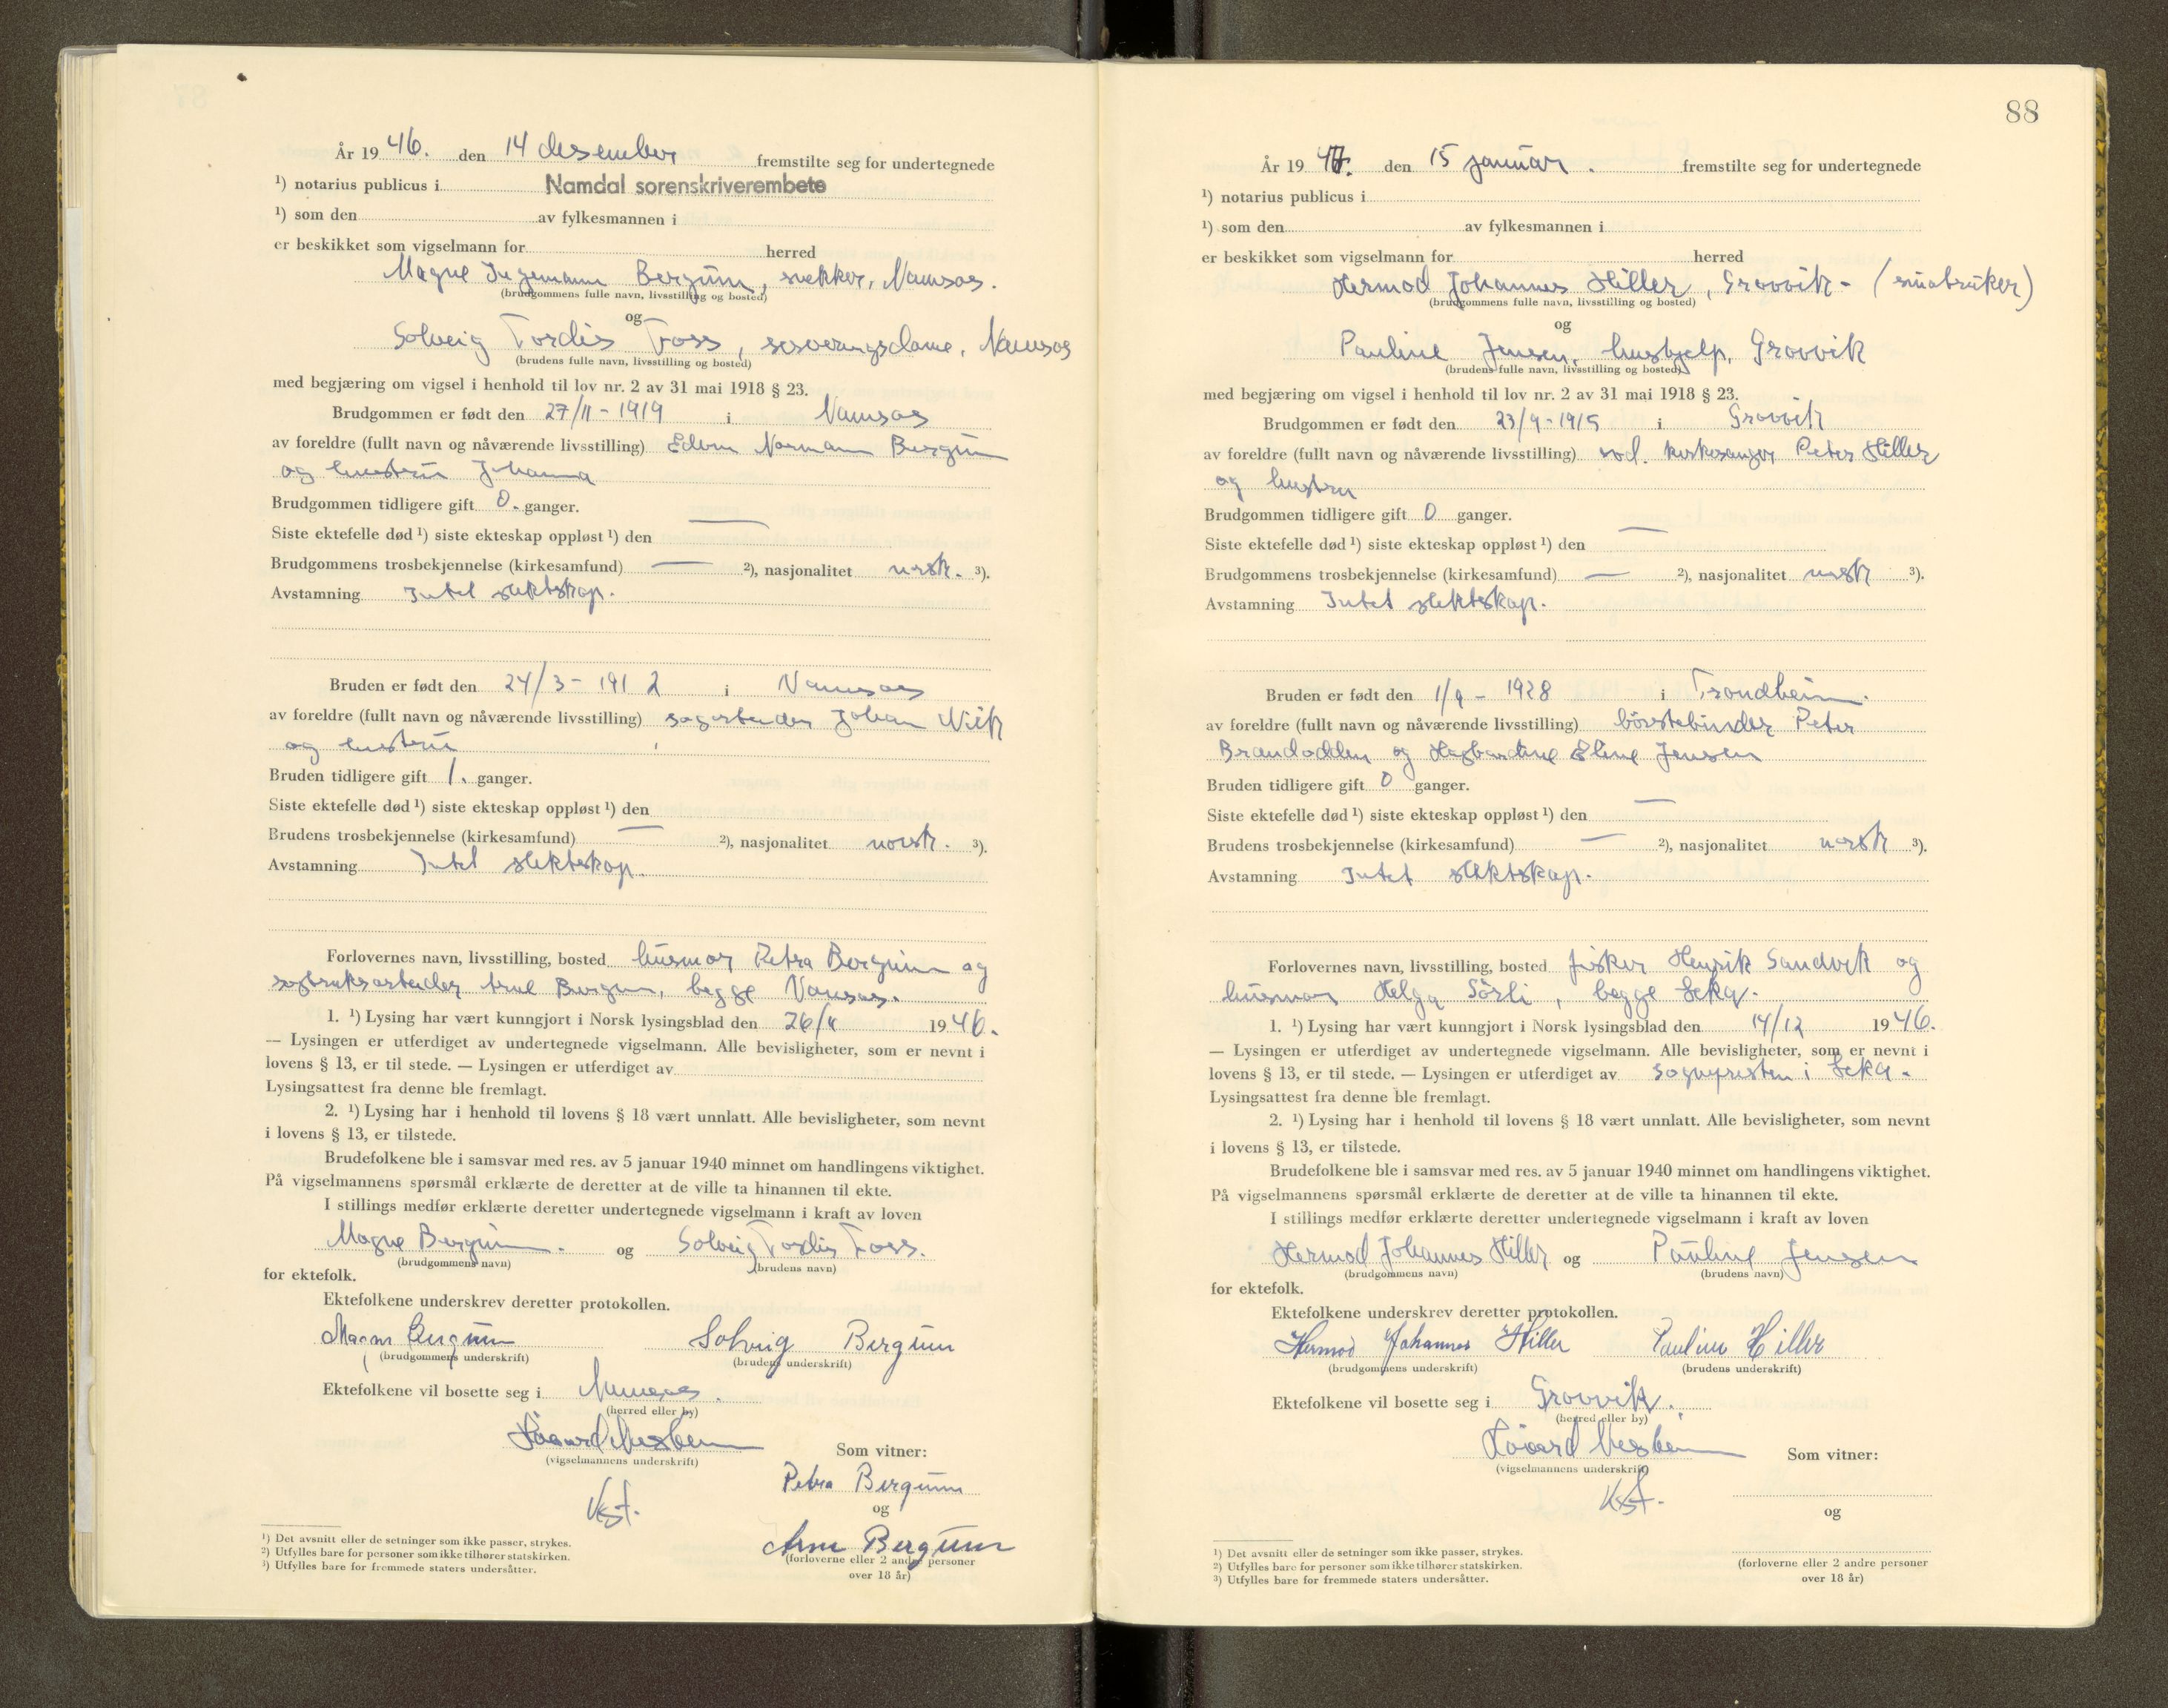 År 19 46. den 14 desember fremstilte seg for undertegnede
¹) notarius publicus i Namdal sorenskriverembete
¹) som den av fylkesmannen i
er beskikket som vigselmann for herred
Magne Ingemann Bergum, snekker, Namsos.
(brudgommens fulle navn, livsstilling og bosted)
og
Solveig Tordis Foss, serveringsdame, Namsos
(brudens fulle navn, livsstilling og bosted)
med begjæring om vigsel i henhold til lov nr. 2 av 31 mai 1918 § 23.
Brudgommen er født den 27/11 - 1919 i Namsos
av foreldre (fullt navn og nåværende livsstilling) Normann Bergum
og hustru Johanna
Brudgommen tidligere gift 0. ganger.
Siste ektefelle død ¹) siste ekteskap oppløst ¹) den —
Brudgommens trosbekjennelse (kirkesamfund) — ²), nasjonalitet norsk. ³).
Avstamning Intet slektskap.
Bruden er født den 24/3 - 1912 i Namsos
av foreldre (fullt navn og nåværende livsstilling) sagarbeider Johan
og hustru
Bruden tidligere gift 1. ganger.
Siste ektefelle død ¹) siste ekteskap oppløst ¹) den
Brudens trosbekjennelse (kirkesamfund) — ²), nasjonalitet norsk. ³).
Avstamning Intet slektskap.
Forlovernes navn, livsstilling, bosted husmor Petra Bergum og
Bergum, begge Namsos.
1. ¹) Lysing har vært kunngjort i Norsk lysingsblad den 26/11 1946.
— Lysingen er utferdiget av undertegnede vigselmann. Alle bevisligheter, som er nevnt i
lovens § 13, er til stede. — Lysingen er utferdiget av
Lysingsattest fra denne ble fremlagt.
2. ¹) Lysing har i henhold til lovens § 18 vært unnlatt. Alle bevisligheter, som nevnt
i lovens § 13, er tilstede.
Brudefolkene ble i samsvar med res. av 5 januar 1940 minnet om handlingens viktighet.
På vigselmannens spørsmål erklærte de deretter at de ville ta hinannen til ekte.
I stillings medfør erklærte deretter undertegnede vigselmann i kraft av loven
Magne Bergum. og Solveig Tordis Foss.
(brudgommens navn) (brudens navn)
for ektefolk.
Ektefolkene underskrev deretter protokollen.
Magne Bergum Solveig Bergum
(brudgommens underskrift) (brudens underskrift)
Ektefolkene vil bosette seg i Namsos.
(herred eller by)
Håvard
(vigselmannens underskrift)
Som vitner:
Petra Bergum
og
Arne Bergum
(forloverne eller 2 andre personer
over 18 år)
Kst.
¹) Det avsnitt eller de setninger som ikke passer, strykes.
²) Utfylles bare for personer som ikke tilhører statskirken.
³) Utfylles bare for fremmede staters undersåtter.
88
År 19 47. den 15 januar. fremstilte seg for undertegnede
¹) notarius publicus i
¹) som den av fylkesmannen i
er beskikket som vigselmann for herred
Hermod Johannes Hiller, Gravvik - (småbruker)
(brudgommens fulle navn, livsstilling og bosted)
og
Pauline Jensen, hushjelp, Gravvik
(brudens fulle navn, livsstilling og bosted)
med begjæring om vigsel i henhold til lov nr. 2 av 31 mai 1918 § 23.
Brudgommen er født den 23/9 - 1915 i Gravvik
av foreldre (fullt navn og nåværende livsstilling) kirkesanger Peter Hiller
og hustru
Brudgommen tidligere gift 0 ganger.
Siste ektefelle død ¹) siste ekteskap oppløst ¹) den —
Brudgommens trosbekjennelse (kirkesamfund) — ²), nasjonalitet norsk ³).
Avstamning Intet slektskap.
Bruden er født den 1/9 - 1928 i Trondheim.
av foreldre (fullt navn og nåværende livsstilling) børstebinder Peter
Brandodden og Hagbardine Eline Jensen
Bruden tidligere gift 0 ganger.
Siste ektefelle død ¹) siste ekteskap oppløst ¹) den —
Brudens trosbekjennelse (kirkesamfund) — ²), nasjonalitet norsk ³).
Avstamning Intet slektskap.
Forlovernes navn, livsstilling, bosted fisker Henrik Sandvik og
husmor Helga Sørli, begge Leka.
1. ¹) Lysing har vært kunngjort i Norsk lysingsblad den 14/12 1946.
— Lysingen er utferdiget av undertegnede vigselmann. Alle bevisligheter, som er nevnt i
lovens § 13, er til stede. — Lysingen er utferdiget av sognepresten i Leka.
Lysingsattest fra denne ble fremlagt.
2. ¹) Lysing har i henhold til lovens § 18 vært unnlatt. Alle bevisligheter, som nevnt
i lovens § 13, er tilstede.
Brudefolkene ble i samsvar med res. av 5 januar 1940 minnet om handlingens viktighet.
På vigselmannens spørsmål erklærte de deretter at de ville ta hinannen til ekte.
I stillings medfør erklærte deretter undertegnede vigselmann i kraft av loven
Hermod Johannes Hiller og Pauline Jensen
(brudgommens navn) (brudens navn)
for ektefolk.
Ektefolkene underskrev deretter protokollen.
Hermod Johannes Hiller Pauline Hiller
(brudgommens underskrift) (brudens underskrift)
Ektefolkene vil bosette seg i Gravvik.
(herred eller by)
Håvard
(vigselmannens underskrift)
Som vitner:
Kst.
og
(forloverne eller 2 andre personer
over 18 år)
¹) Det avsnitt eller de setninger som ikke passer, strykes.
²) Utfylles bare for personer som ikke tilhører statskirken.
³) Utfylles bare for fremmede staters undersåtter.